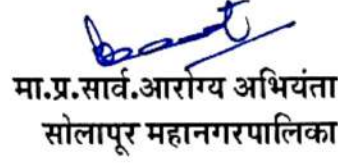 मा.प्र.सार्व.आरोग्य अभियंता
सोलापूर महानगरपालिका